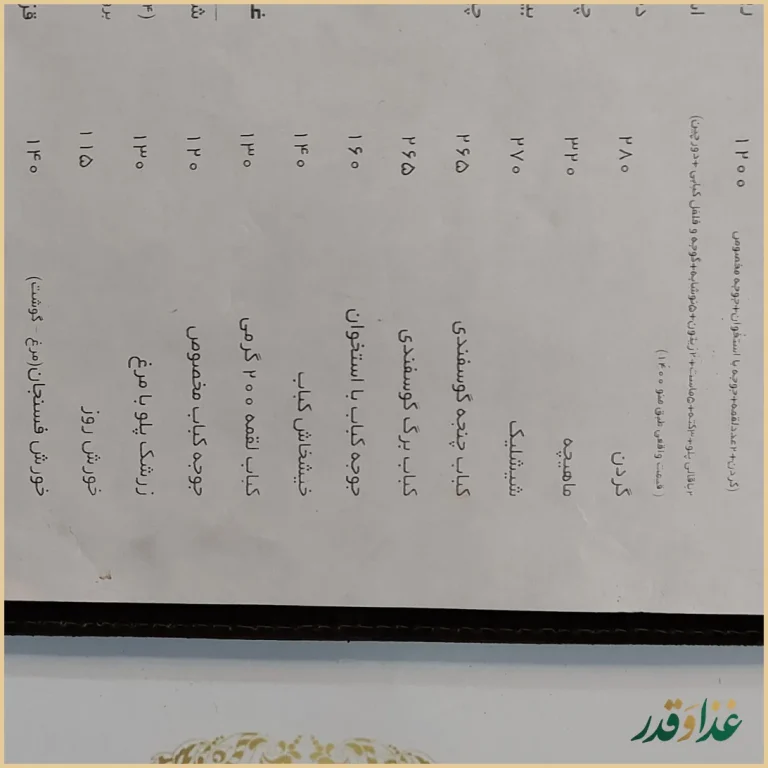 (گردن+۲عددلقمه+جوجه با استخوان+جوجه مخصوص ۱۲۰۰
۲باقالی پلو+۳کته+۵ماست+۲زیتون+۵نوشابه+گوجه و فلفل کبابی +دورچین)
( قیمت واقعی طبق منو ۱۴۰۰)
گردن ۲۸۰
ماهیچه ۳۲۰
شیشلیک ۲۷۰
کباب چنجه گوسفندی ۲۶۵
کباب برگ گوسفندی ۲۶۵
جوجه کباب با استخوان ۱۶۰
خیشخاش کباب ۱۴۰
کباب لقمه ۲۰۰ گرمی ۱۳۰
جوجه کباب مخصوص ۱۲۰
زرشک پلو با مرغ ۱۳۰
خورش روز ۱۱۵
خورش فسنجان(مرغ - گوشت) ۱۴۰
غذا و قدر